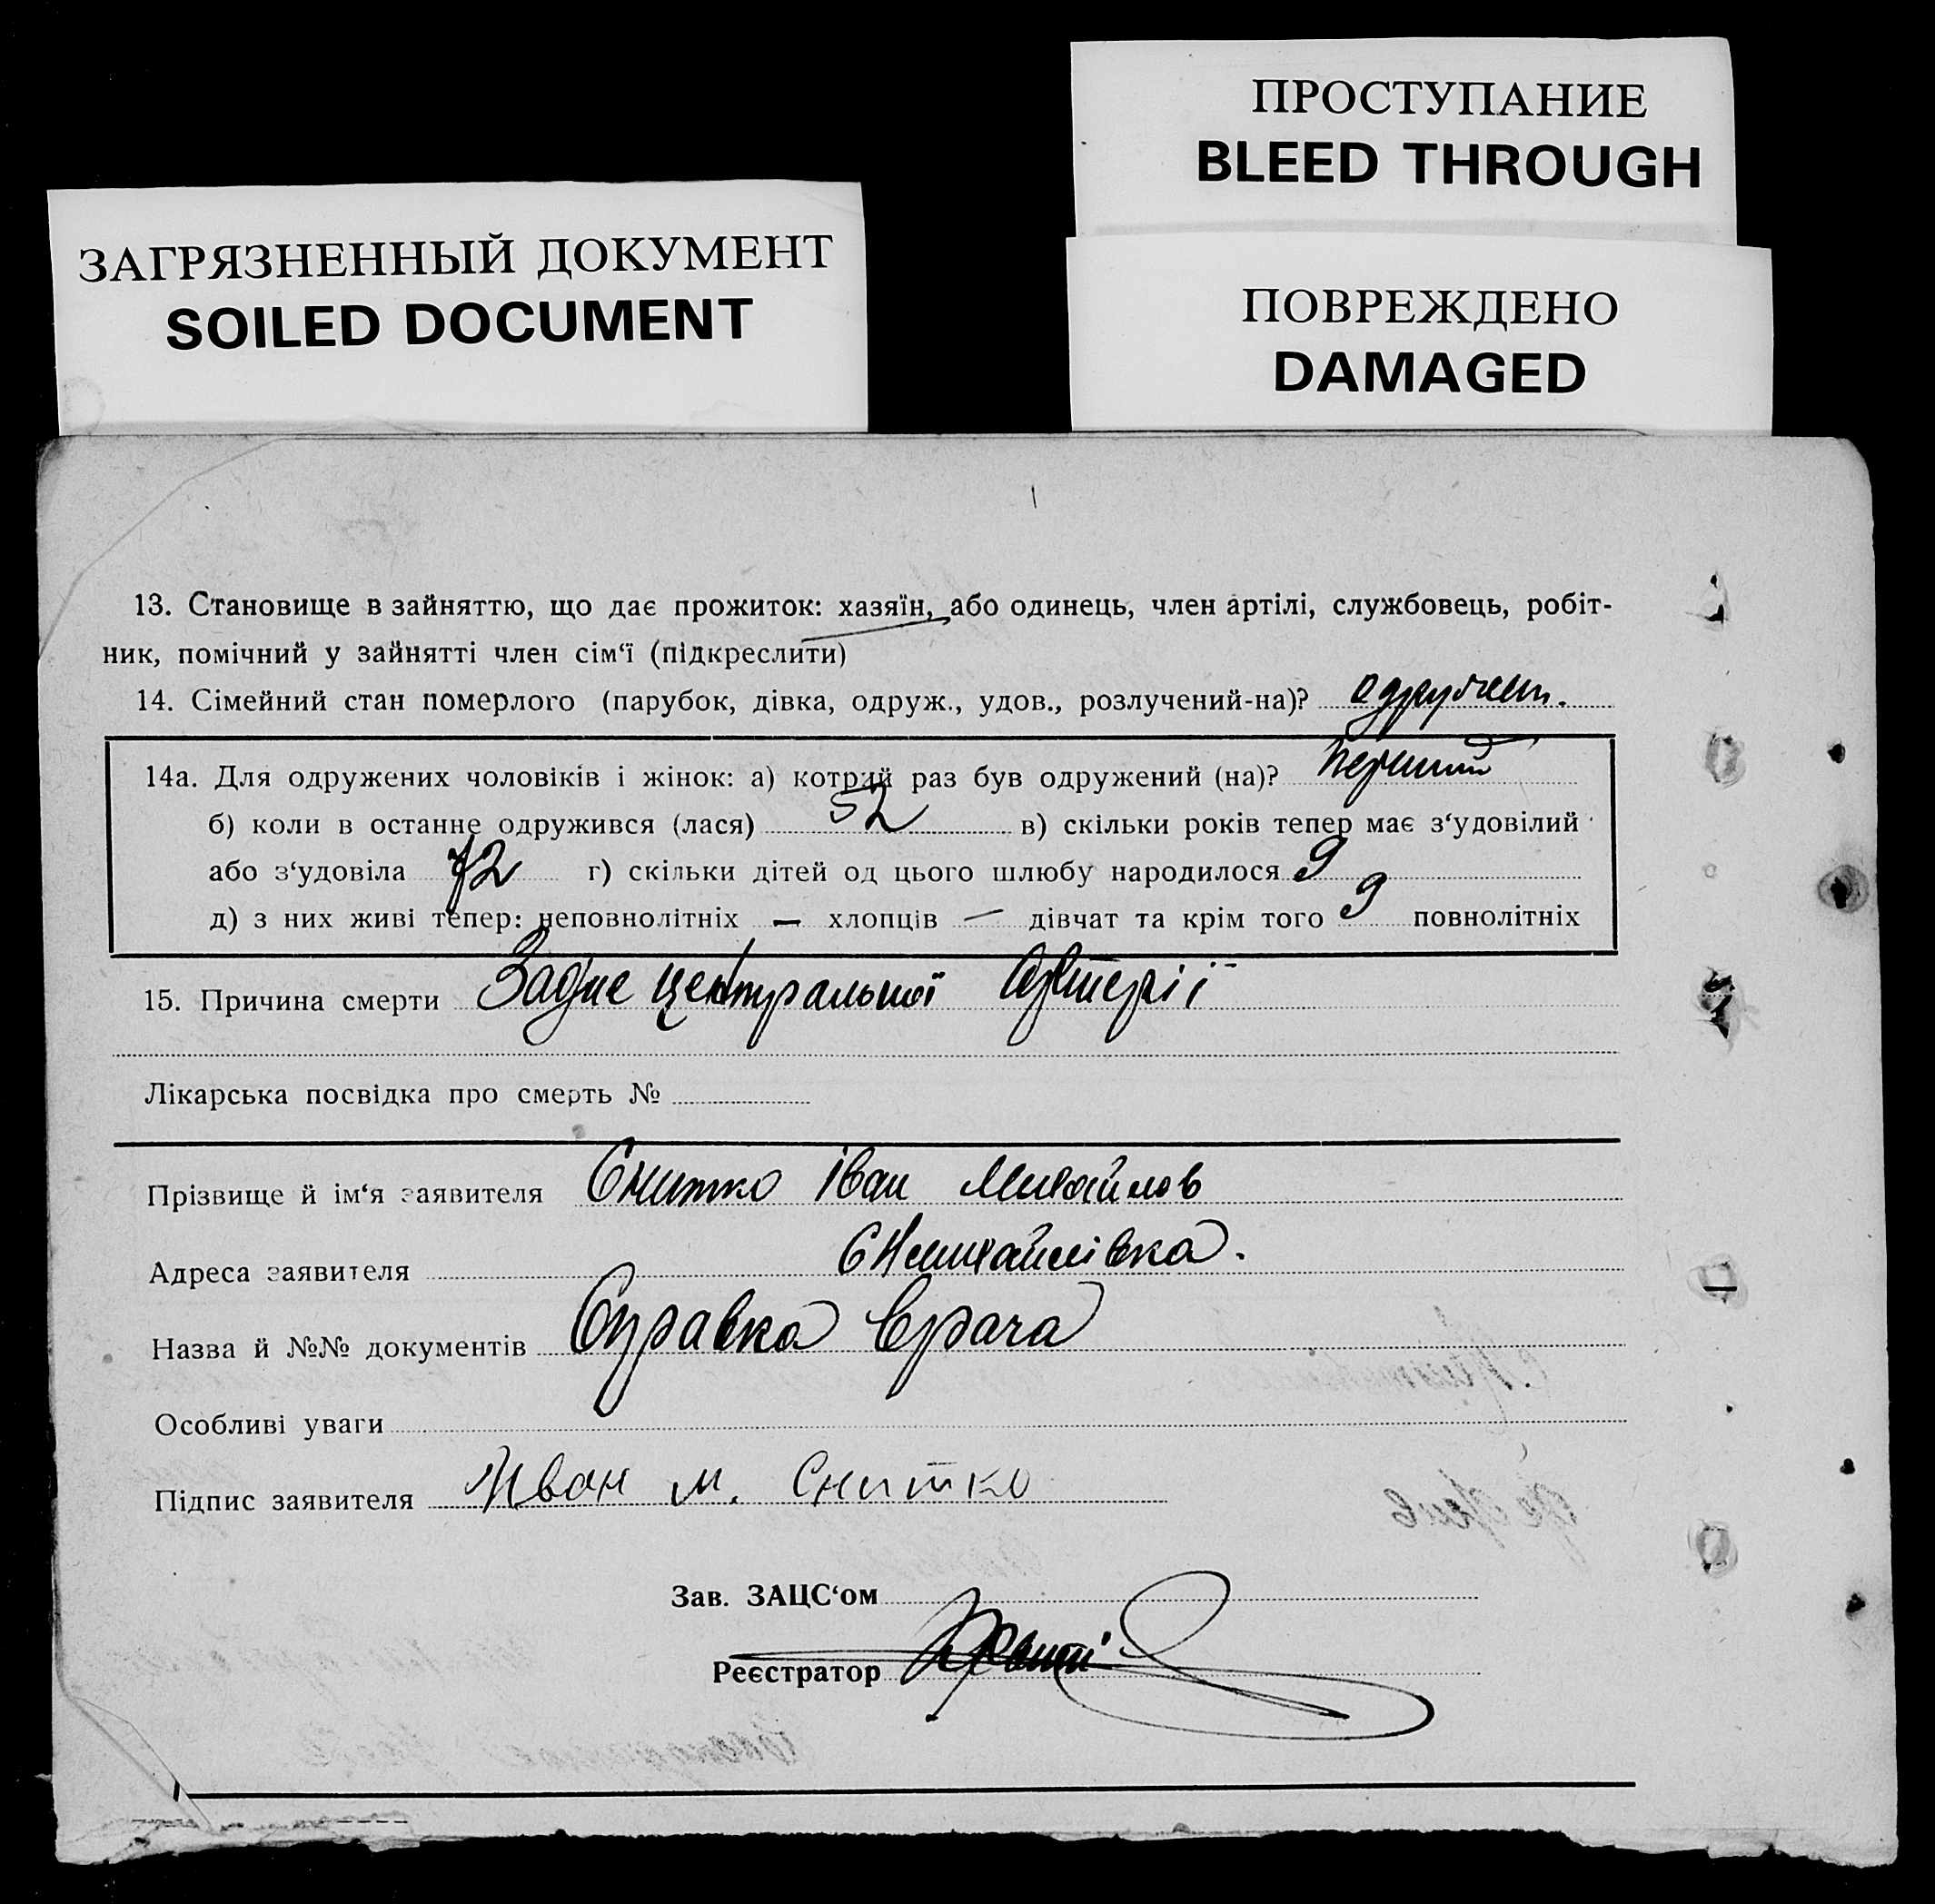 ПРОСТУПАНИЕ
BLEED THROUGH
ЗАГРЯЗНЕННЫЙ ДОКУМЕНТ
SOILED DOCUMENT
ПОВРЕЖДЕНО
DAMAGED
13. Становище в зайняттю, що дає прожиток: хазяїн, або одинець, член артілі, службовець, робіт-
ник, помічний у зайнятті член сім‘ї (підкреслити)
14. Сімейний стан померлого (парубок, дівка, одруж., удов., розлучений-на)?
14а. Для одружених чоловіків і жінок: а) котрий раз був одружений (на)? перший
б) коли в останнє одружився (лася) 52 в) скільки років тепер має з‘удовілий
або з‘удовіла 72 г) скільки дітей од цього шлюбу народилося 9
д) з них живі тепер: неповнолітніх — хлопців — дівчат та крім того 9 повнолітніх
15. Причина смерти центральної Артерії
Лікарська посвідка про смерть №
Прізвище й ім‘я заявителя Снитко Іван Михайлов
Адреса заявителя
Назва й №№ документів Справка врача
Особливі уваги
Підпис заявителя Иван М. Снитко
Зав. ЗАЦС‘ом
Реєстратор